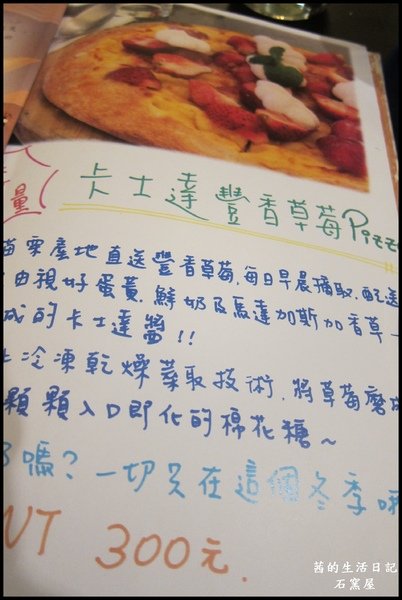 量
卡士達豐香草莓Pizz
苗栗產地直送豐香草莓,每日早晨摘取,配送
由視好蛋黃,鮮奶及馬達加斯加香草一
成的卡士達醬!!
冷凍乾燥萃取技術,將草莓磨成
顆顆入口即化的棉花糖~
嗎?一切只在這個冬季哦
NT 300元.
茜的生活日記
石窯屋